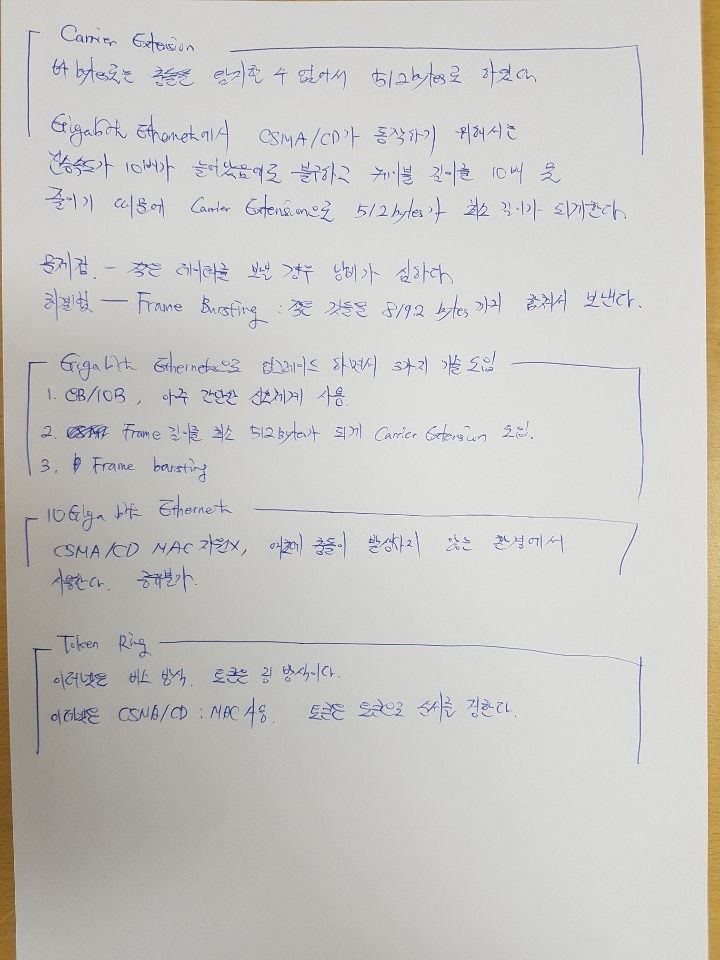 Carrier Extension
64 bytes로는 충돌을 탐지할 수 없어서 512bytes로 하였다
Gigabit Ethernet에서 CSMA/CD가 동작하기 위해서는
전송속도가 10배가 늘어났음에도 불구하고 케이블 길이를 10배 못
줄이기 때문에 Carrier Extension으로 512bytes가 최소 길이가 되게한다.
문제점 - 작은 데이터를 보낼 경우 낭비가 심하다.
해결법 — Frame Bursting : 작은 것들을 8192 bytes까지 합쳐서 보낸다.
Gigabit Ethernet으로 업그레이드 하면서 3가지 기술 도입
1. 8B/10B, 아주 간단한 신호체계 사용.
2. Frame 길이를 최소 512bytes가 되게 Carrier Extension 도입.
3. Frame bursting
10Giga bit Ethernet
CSMA/CD MAC 지원X, 충돌이 발생하지 않는 환경에서
사용한다.
Token Ring
이더넷은 버스 방식. 토큰은 링 방식이다.
이더넷은 CSMA/CD : MAC 사용. 토큰은 토큰으로 순서를 정한다.